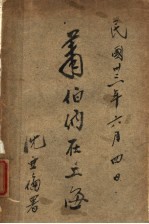 民國廿三年六月四日
蕭伯納在上海